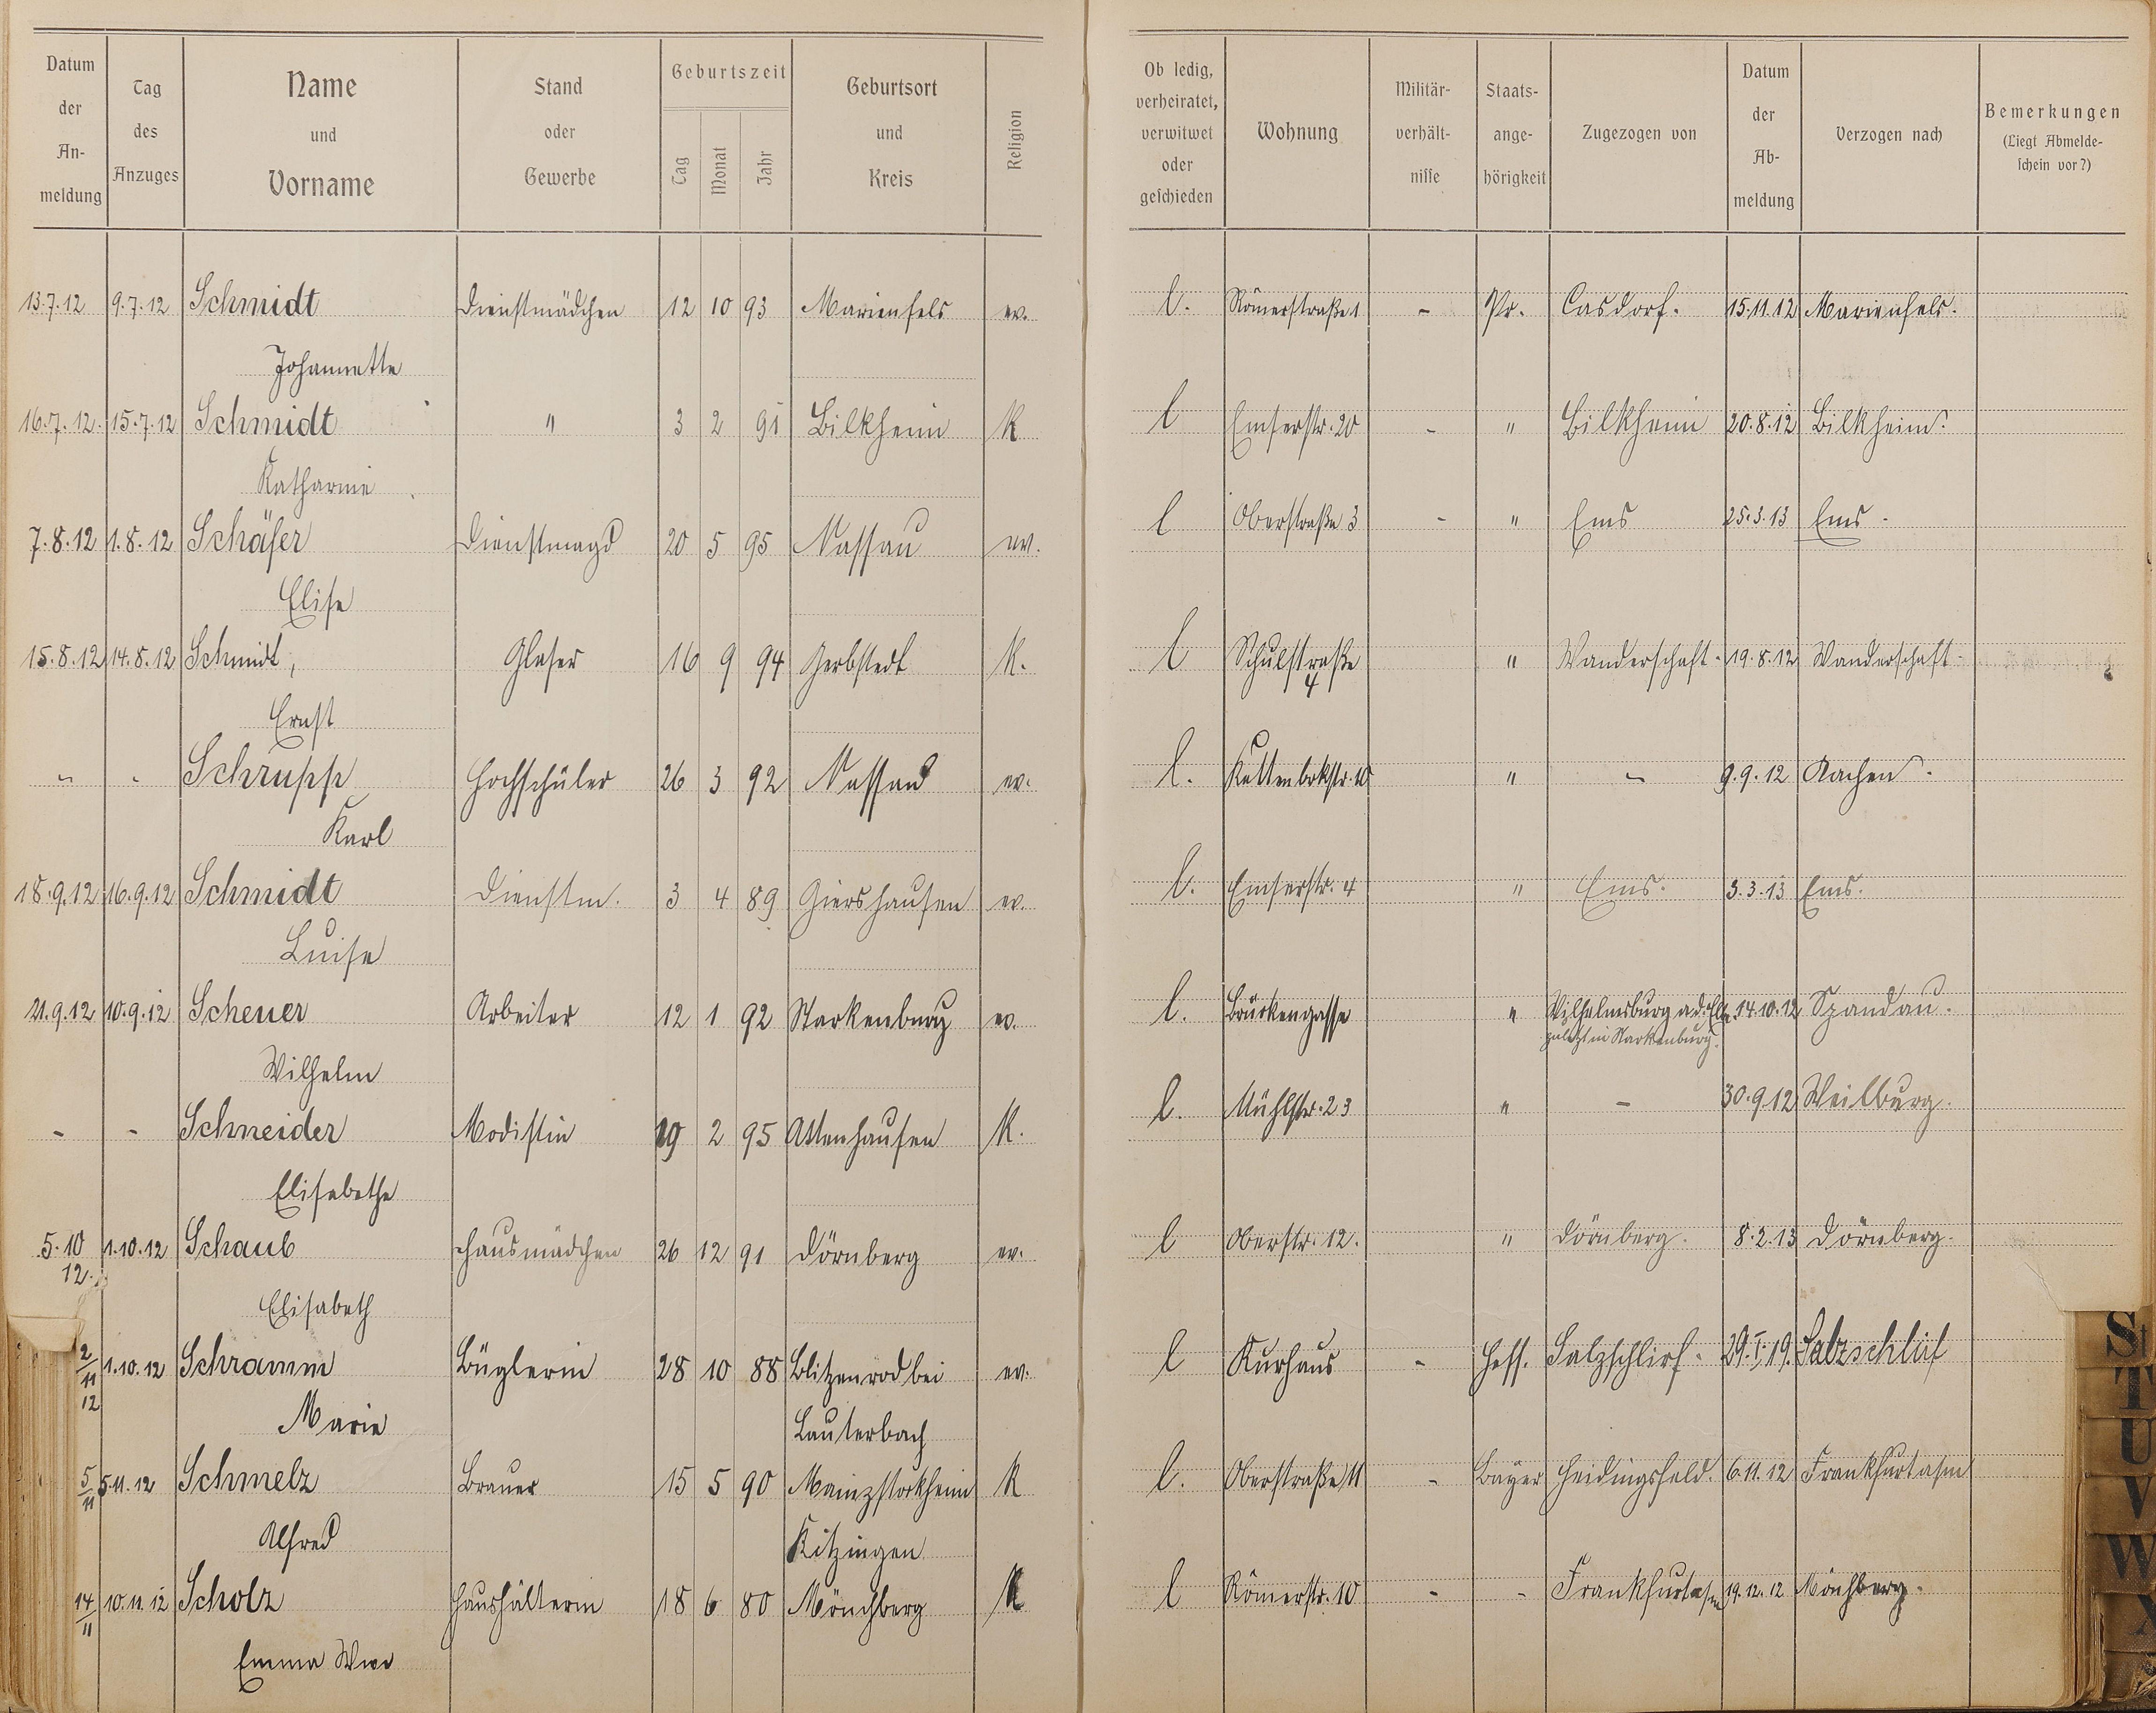 Datum der Anmeldung | Tag des Anzuges | Name und Vorname | Stand oder Gewerbe | Geburtszeit Tag Monat Jahr | Geburtsort und Kreis | Religion | Ob ledig, verheiratet, verwitwet oder geschieden | Wohnung | Militärverhältnisse | Staatsangehörigkeit | Zugezogen von | Datum der Abmeldung | Verzogen nach | Bemerkungen (Liegt Abmeldeschein vor?)
13.7.12 9.7.12 Schmidt Dienstmädchen 12 10 93 Marienfels ev. l. Römerstraße 1 - Pr. Casdorf. 15.11.12 Marienfels.
Johannette
16.7.12. 15.7.12 Schmidt " 3 2 91 Bilkheim K l Emserstr. 20 - " Bilkheim 20.8.12 Bilkheim.
Katharine
7.8.12 1.8.12 Schäfer Dienstmagd 20 5 95 Nassau ev. l Oberstraße 3 - " Ems 25.3.13 Ems.
Elise
15.8.12 14.8.12 Schmidt, Glaser 16 9 94 Gerbstedt K. l Schulstraße 4 " Wanderschaft. 19.8.12 Wanderschaft
Ernst
" " Schrupp Hochschüler 26 3 92 Nassau ev. l. " - 9.9.12 Aachen.
Karl
18.9.12 16.9.12 Schmidt Dienstm. 3 4 89 Giershausen ev. l. Emserstr. 4 " Ems. 3.3.13 Ems.
Luise
21.9.12 10.9.12 Scheuer Arbeiter 12 1 92 Starkenburg ev. l. Brückengasse " Wilhelmsburg a.d. Elbe 14.10.12 Spandau.
zuletzt in Starkenburg.
Wilhelm
- - Schneider Modistin 19 2 95 Attenhausen K. l. Mühlstr. 23 " - 30.9.12 Weilburg.
Elisabethe
5.10 12. 1.10.12 Schaub Hausmädchen 26 12 91 Dörnberg ev. l Oberstr. 12. " Dörnberg. 8.2.13 Dörnberg.
Elisabeth
2/11 12 1.10.12 Schramm Büglerin 28 10 88 Blitzenrod bei ev. l Kurhaus - Hess. Salzschlirf. 29.I.19. Salzschlirf
Marie Lauterbach
5/11 5.11.12 Schmelz Brauer 15 5 90 Mainzstockheim K l. Oberstraße 11 - Bayer Heidingsfeld. 6.11.12 Frankfurt a/m
Alfred Kitzingen
14/11 10.11.12 Scholz Haushälterin 18 6 80 Mönchberg K l Römerstr. 10 - - Frankfurt a/m 19.12.12 Mönchberg.
Emma Wwe
St
T
U
V
W
X